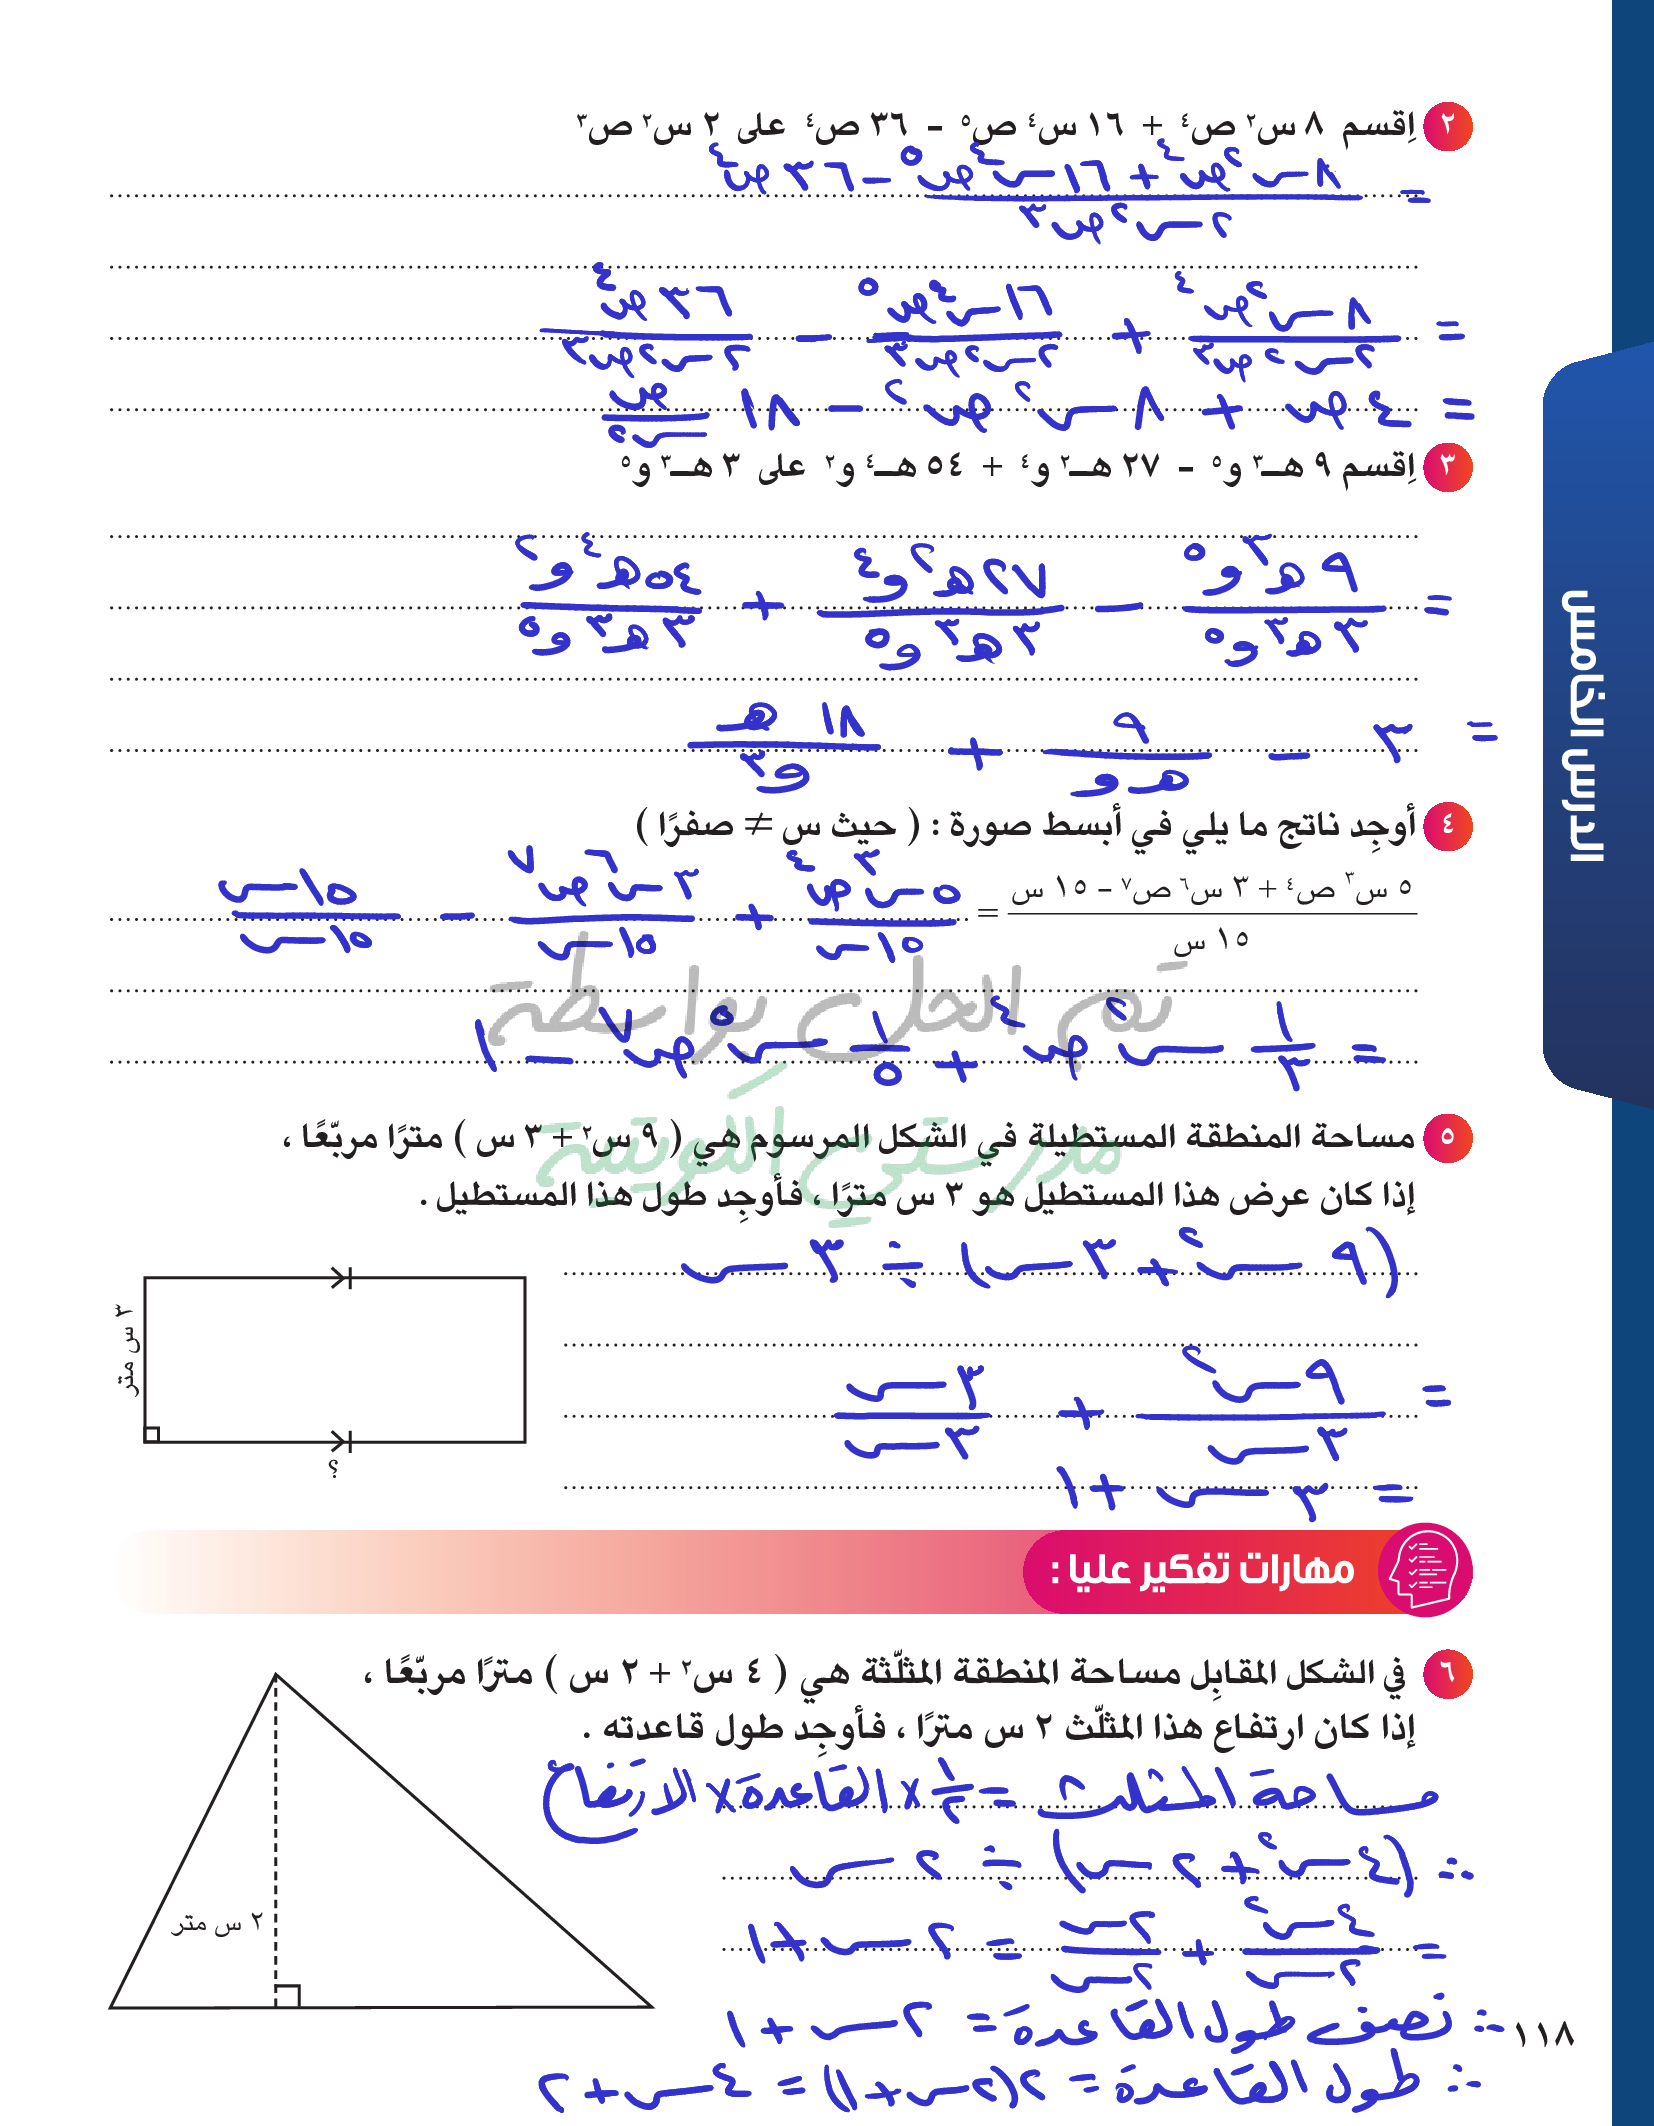 ٢ اِقسم ٨ س٢ ص٤ + ١٦ س٤ ص٥ - ٣٦ ص٤ على ٢ س٢ ص٣
= ٨ س٢ ص٤ + ١٦ س٤ ص٥ - ٣٦ ص٤
٢ س٢ ص٣
= ٨ س٢ ص٤ / ٢ س٢ ص٣ + ١٦ س٤ ص٥ / ٢ س٢ ص٣ - ٣٦ ص٤ / ٢ س٢ ص٣
= ٤ ص + ٨ س٢ ص٢ - ١٨ ص / س٢
٣ اِقسم ٩ هـ٣ و٥ - ٢٧ هـ٢ و٤ + ٥٤ هـ٤ و٢ على ٣ هـ٣ و٥
= ٩ هـ٣ و٥ / ٣ هـ٣ و٥ - ٢٧ هـ٢ و٤ / ٣ هـ٣ و٥ + ٥٤ هـ٤ و٢ / ٣ هـ٣ و٥
= ٣ - ٩ / هـ و + ١٨ هـ / و٣
٤ أوجِد ناتج ما يلي في أبسط صورة : ( حيث س ≠ صفرًا )
٥ س٣ ص٤ + ٣ س٦ ص٧ - ١٥ س / ١٥ س = ٥ س٣ ص٤ / ١٥ س + ٣ س٦ ص٧ / ١٥ س - ١٥ س / ١٥ س
تم الحل بواسطة
= ١/٣ س٢ ص٤ + ١/٥ س٥ ص٧ - ١
مدرستي الكويتية
٥ مساحة المنطقة المستطيلة في الشكل المرسوم هي ( ٩ س٢ + ٣ س ) مترًا مربّعًا ،
إذا كان عرض هذا المستطيل هو ٣ س مترًا ، فأوجِد طول هذا المستطيل .
(٩ س٢ + ٣ س) ÷ ٣ س
٣ س متر
؟
= ٩ س٢ / ٣ س + ٣ س / ٣ س
= ٣ س + ١
مهارات تفكير عليا :
٦ في الشكل المقابِل مساحة المنطقة المثلّثة هي ( ٤ س٢ + ٢ س ) مترًا مربّعًا ،
إذا كان ارتفاع هذا المثلّث ٢ س مترًا ، فأوجِد طول قاعدته .
مساحة المثلث = ١/٢ × القاعدة × الارتفاع
∴ (٤ س٢ + ٢ س) ÷ ٢ س
٢ س متر
= ٤ س٢ / ٢ س + ٢ س / ٢ س = ٢ س + ١
∴ نصف طول القاعدة = ٢ س + ١
∴ طول القاعدة = ٢(٢ س + ١) = ٤ س + ٢
١١٨
الدرس الخامس